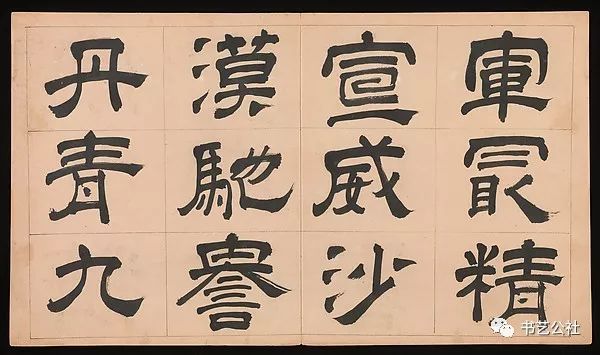 軍最精
宣威沙
漠馳譽
丹青九
书艺公社